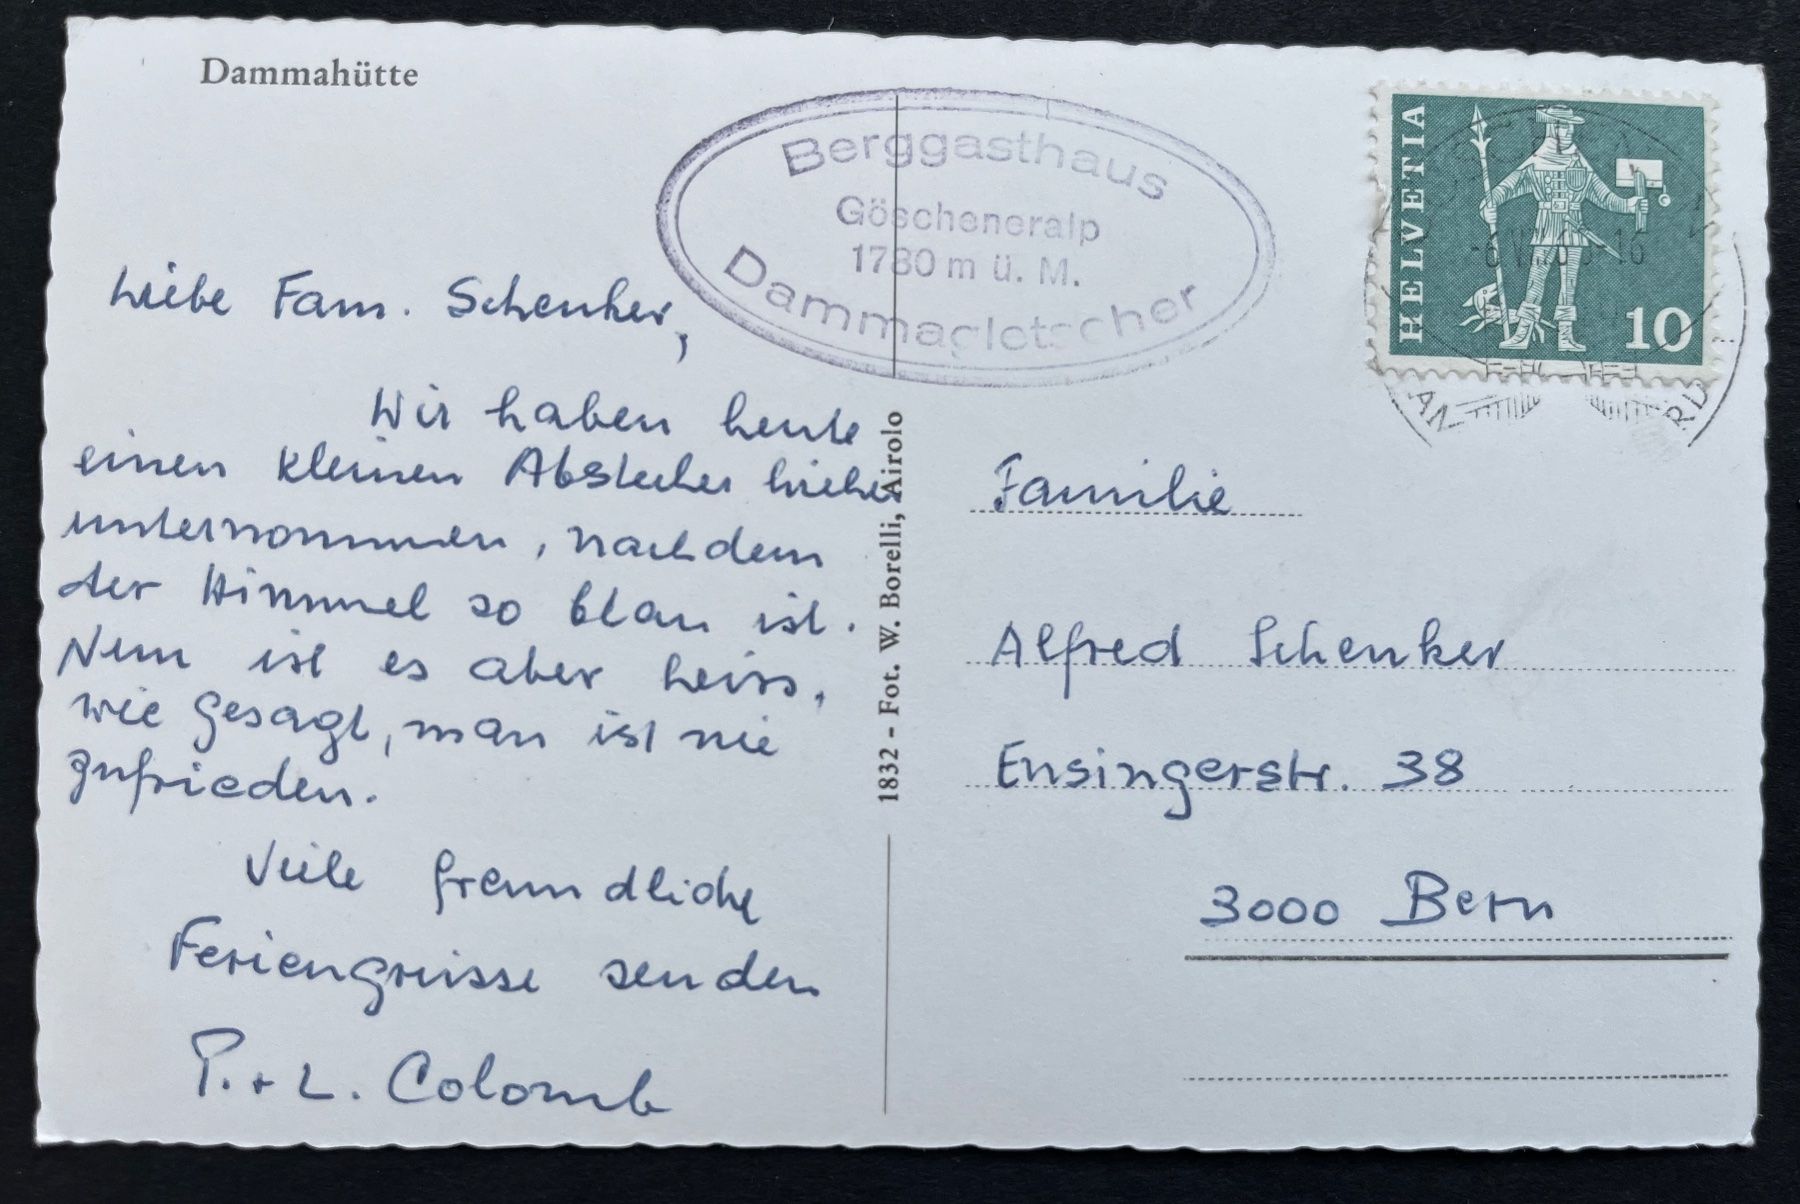 Dammahütte
Berggasthaus
Göscheneralp
1780 m ü. M.
Dammagletscher
HELVETIA
10
Liebe Fam. Schenker,
Wir haben heute
einen kleinen Abstecher hieher
unternommen, nachdem
der Himmel so blau ist.
Nun ist es aber heiss,
wie gesagt, man ist nie
zufrieden.
Viele freundliche
Feriengrüsse senden
P. + L. Colomb
1832 - Fot. W. Borelli, Airolo
Familie
Alfred Schenker
Ensingerstr. 38
3000 Bern